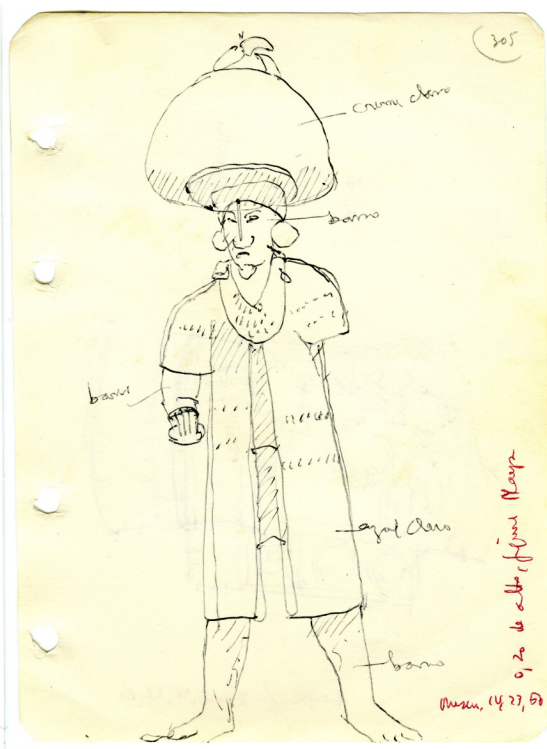 305
crema claro
barro
barro
azul claro
barro
0,20 de alto, figura Maya
Museu, 14, 23, 50